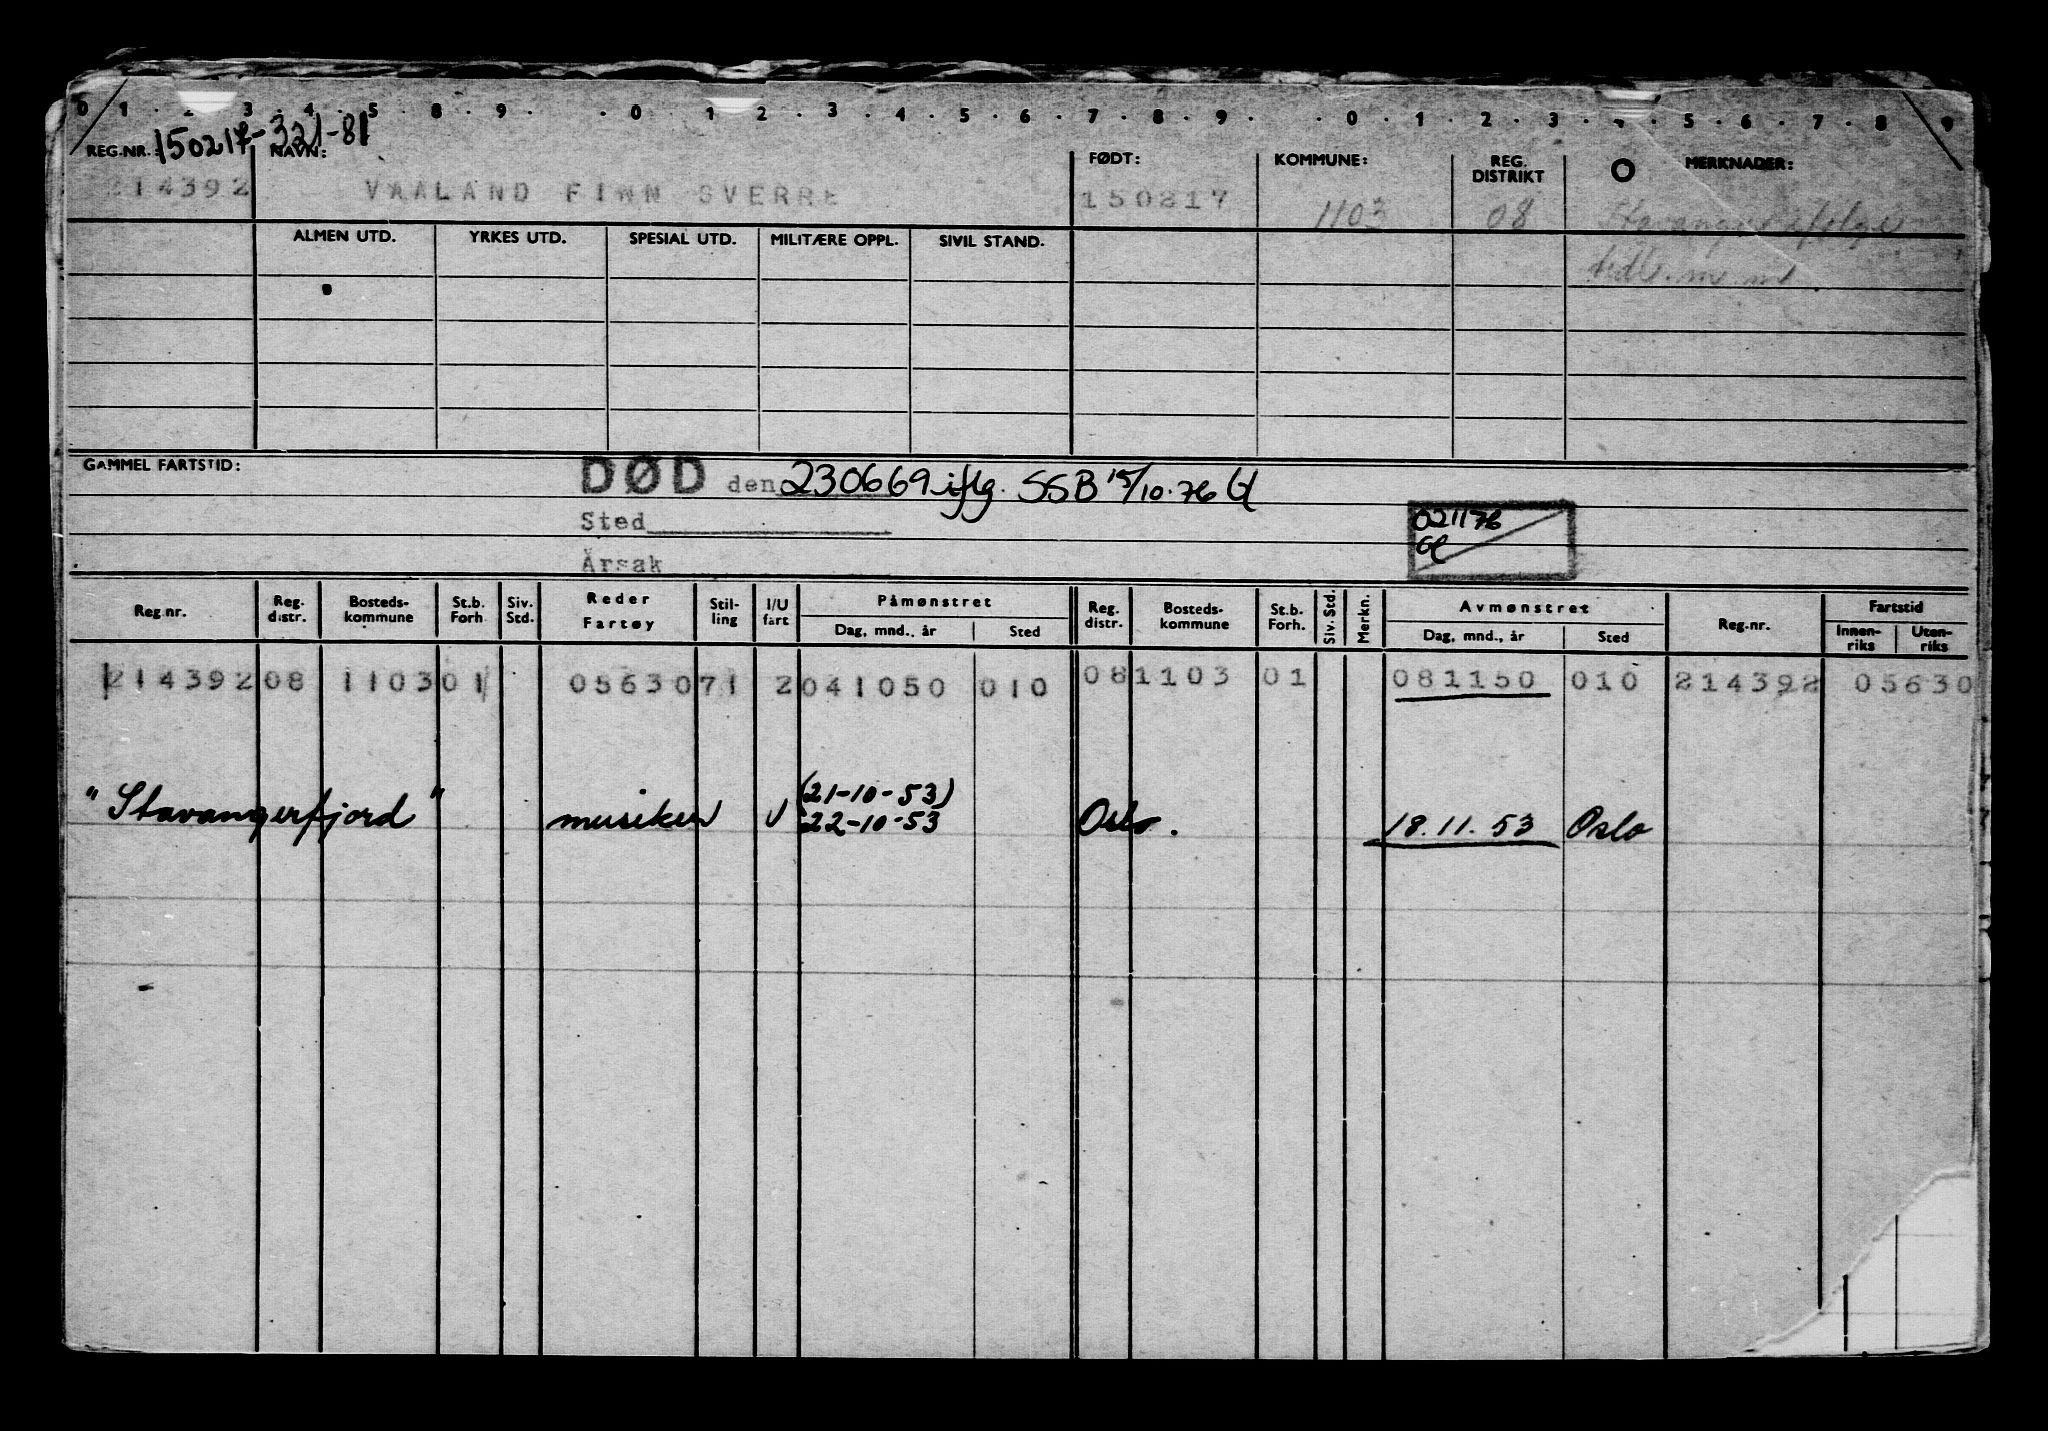 0 1 . 2 . 3 . 4 . 5 8 . 9 . . 0 . 1 2 . 3 . 4 . 5 . 6 . 7 . 8 . 9 . . 0 . 1 . 2 . 3 . 4 . 5 . 6 . 7 . 8 9
150217-321-81
REG.NR.: NAVN: FØDT: KOMMUNE: REG. DISTRIKT MERKNADER:
214392 VAALAND FINN SVERRE 150217 1103 08 Stavanger ifølge
ALMEN UTD. YRKES UTD. SPESIAL UTD. MILITÆRE OPPL. SIVIL STAND.
GAMMEL FARTSTID: DØD den 230669 iflg. SSB 15/10.76 Gl
Sted 021176
Gl
Årsak
Reg.nr. Reg. distr. Bosteds-kommune St.b. Forh. Siv. Std. Reder Fartøy Stil-ling I/U fart Påmønstret Reg. distr. Bosteds-kommune St.b. Forh. Siv. Std. Merkn. Avmønstret Reg.nr. Fartstid
Dag, mnd., år Sted Dag, mnd., år Sted Innen-riks Uten-riks
214392 08 1103 01 05630 71 2 041050 010 08 1103 01 081150 010 214392 05630
(21-10-53)
"Stavangerfjord" musiker U 22-10-53 Oslo. 18.11.53 Oslo